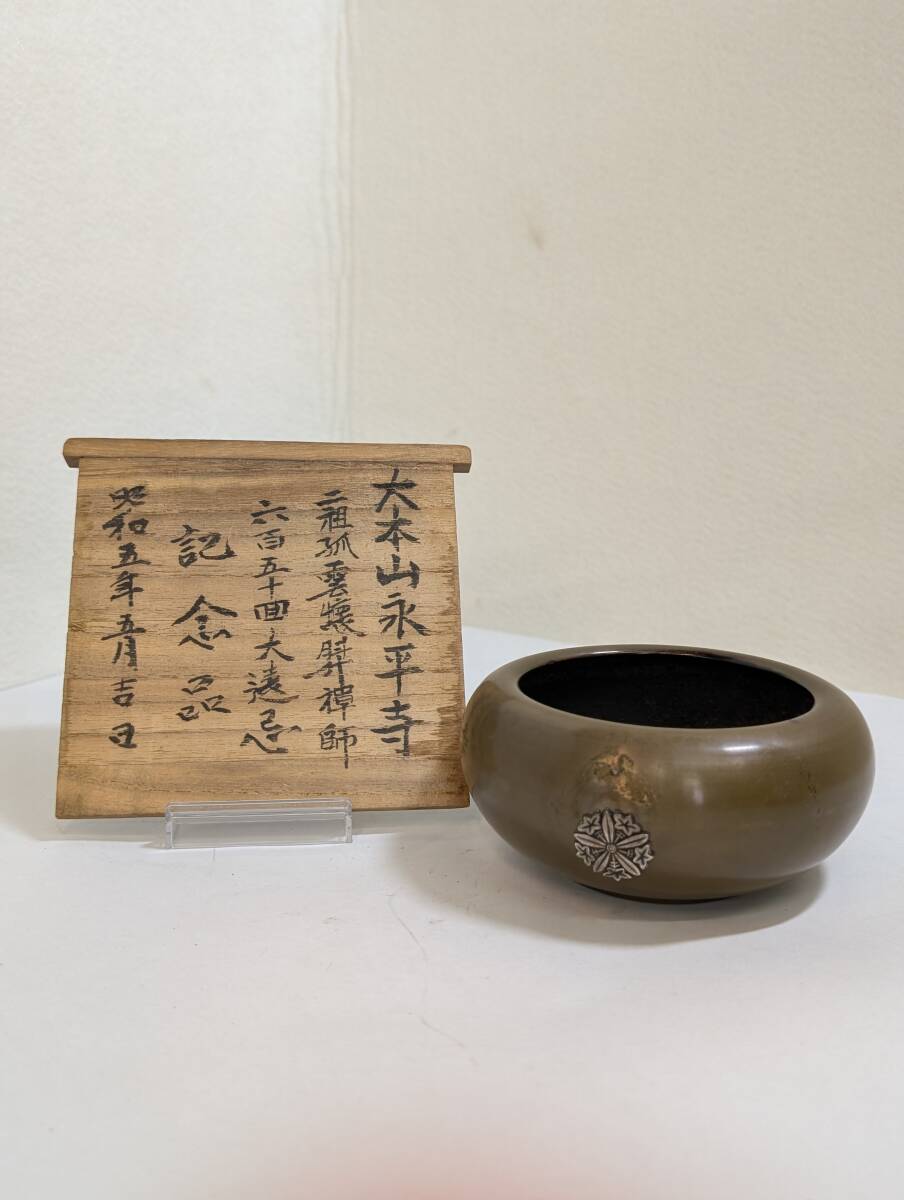 大本山永平寺
二祖孤雲懐弉禅師
六百五十回大遠忌
記念品
昭和五年五月吉日